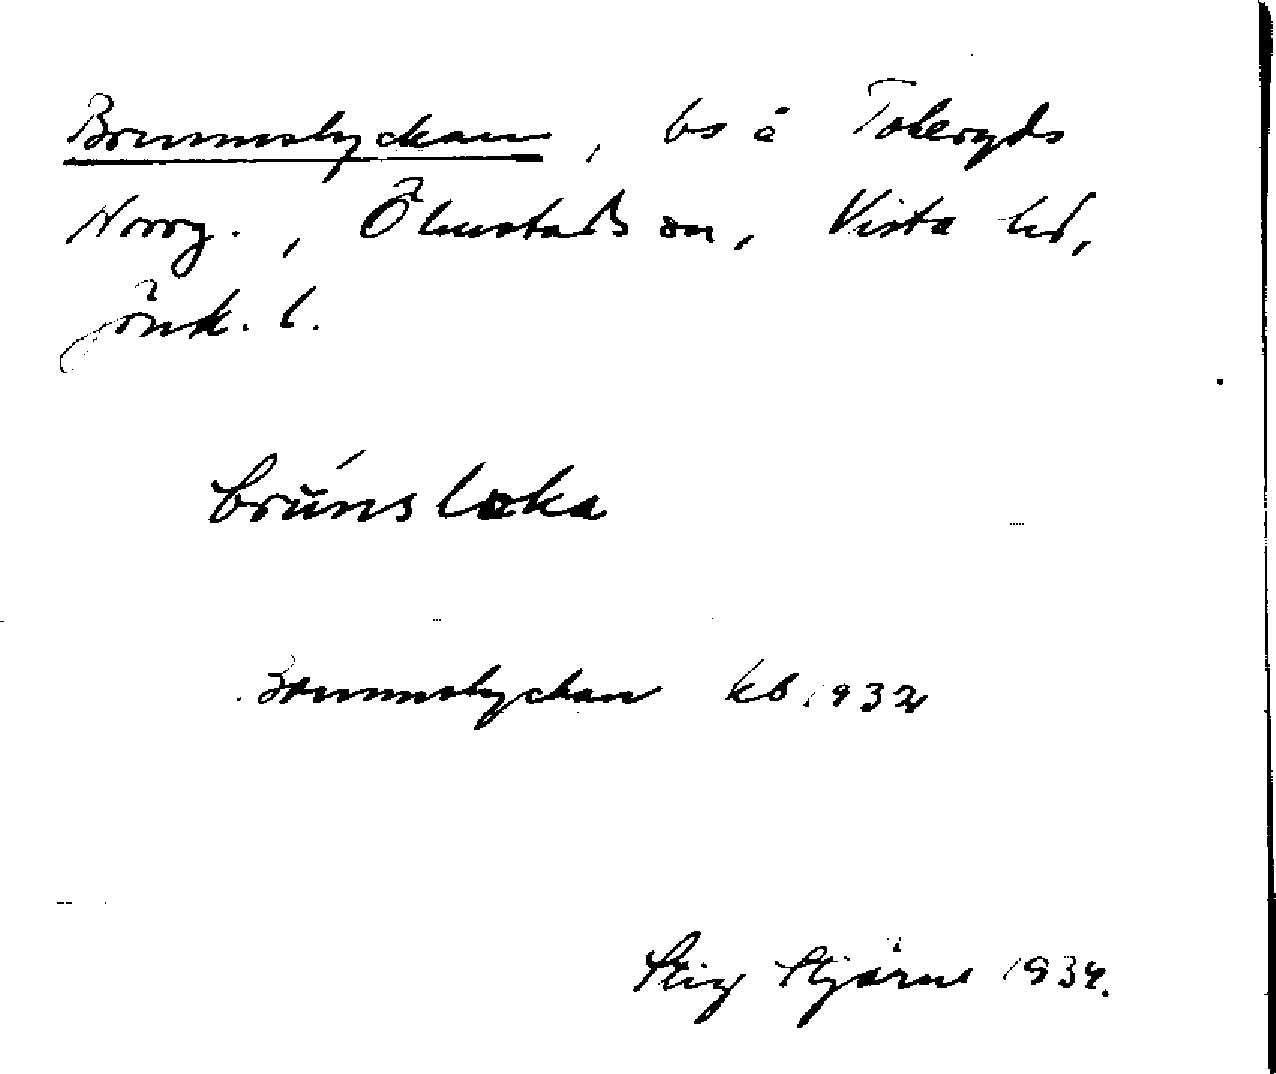 Brunnslyckan, bs å Toleryds
Norrg., Ölmstads sn, Vista hd,
Jönk. l.
brúnsloka
Brunnslyckan kb. 1932
Stig Stjärne 1934.